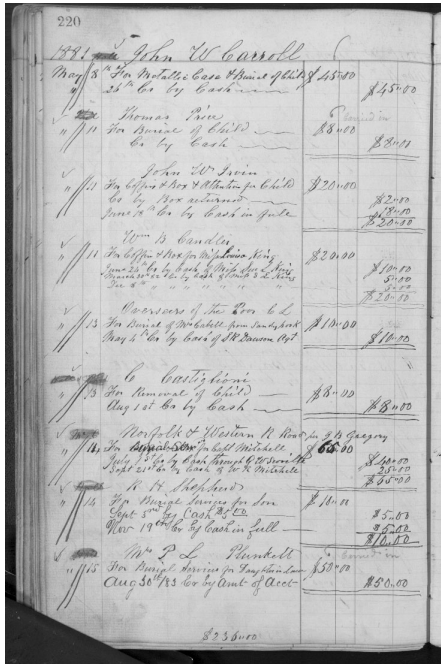 220
1881 John W Carroll
May 8th For Metallic Case & Burial of Child $45.00
" 26th Cr by Cash $45.00
Thomas Price
" 11 For Burial of Child $8.00
Cr by Cash $8.00
John W Irvin
" 11 For Coffin & Box & Attention for Child $20.00
Cr by Box returned $2.00
June 18th Cr by Cash in full 18.00
$20.00
Wm B Candler
" 11 For Coffin & Box for Miss Louisa King $20.00
June 24th Cr by Cash of Miss King $10.00
Cr by Cash of King 5.00
Dec 6th " " " " " 5.00
$20.00
Overseers of the Poor C L
" 13 For Burial of Mr from Sandy hook $10.00
May 4th Cr by Cash of Dawson Agt $10.00
C Castiglioni
" 13 For Removal of Child $8.00
Aug 1st Cr by Cash $8.00
Norfolk & Western R Road for J B Gregory
" 14 For Burial for Capt Mitchell $65.00
July 15th Cr by Cash through $40.00
Sept 21st Cr by Cash of Mitchell 25.00
$65.00
R H Shepherd
" 14 For Burial Services for Son $10.00
Sept 3rd by Cash $5.00 $5.00
Nov 19th Cr by Cash in full $5.00
$10.00
Mrs P L Plunkett
" 15 For Burial Services for Daughter in law $50.00
Aug 30th 83 Cr by Amt of Acct $50.00
$236.00